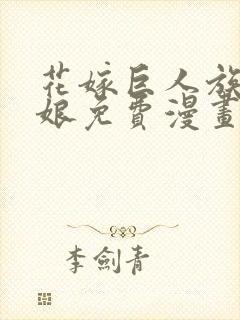 花嫁巨人族
娘免費漫畫
李劍青